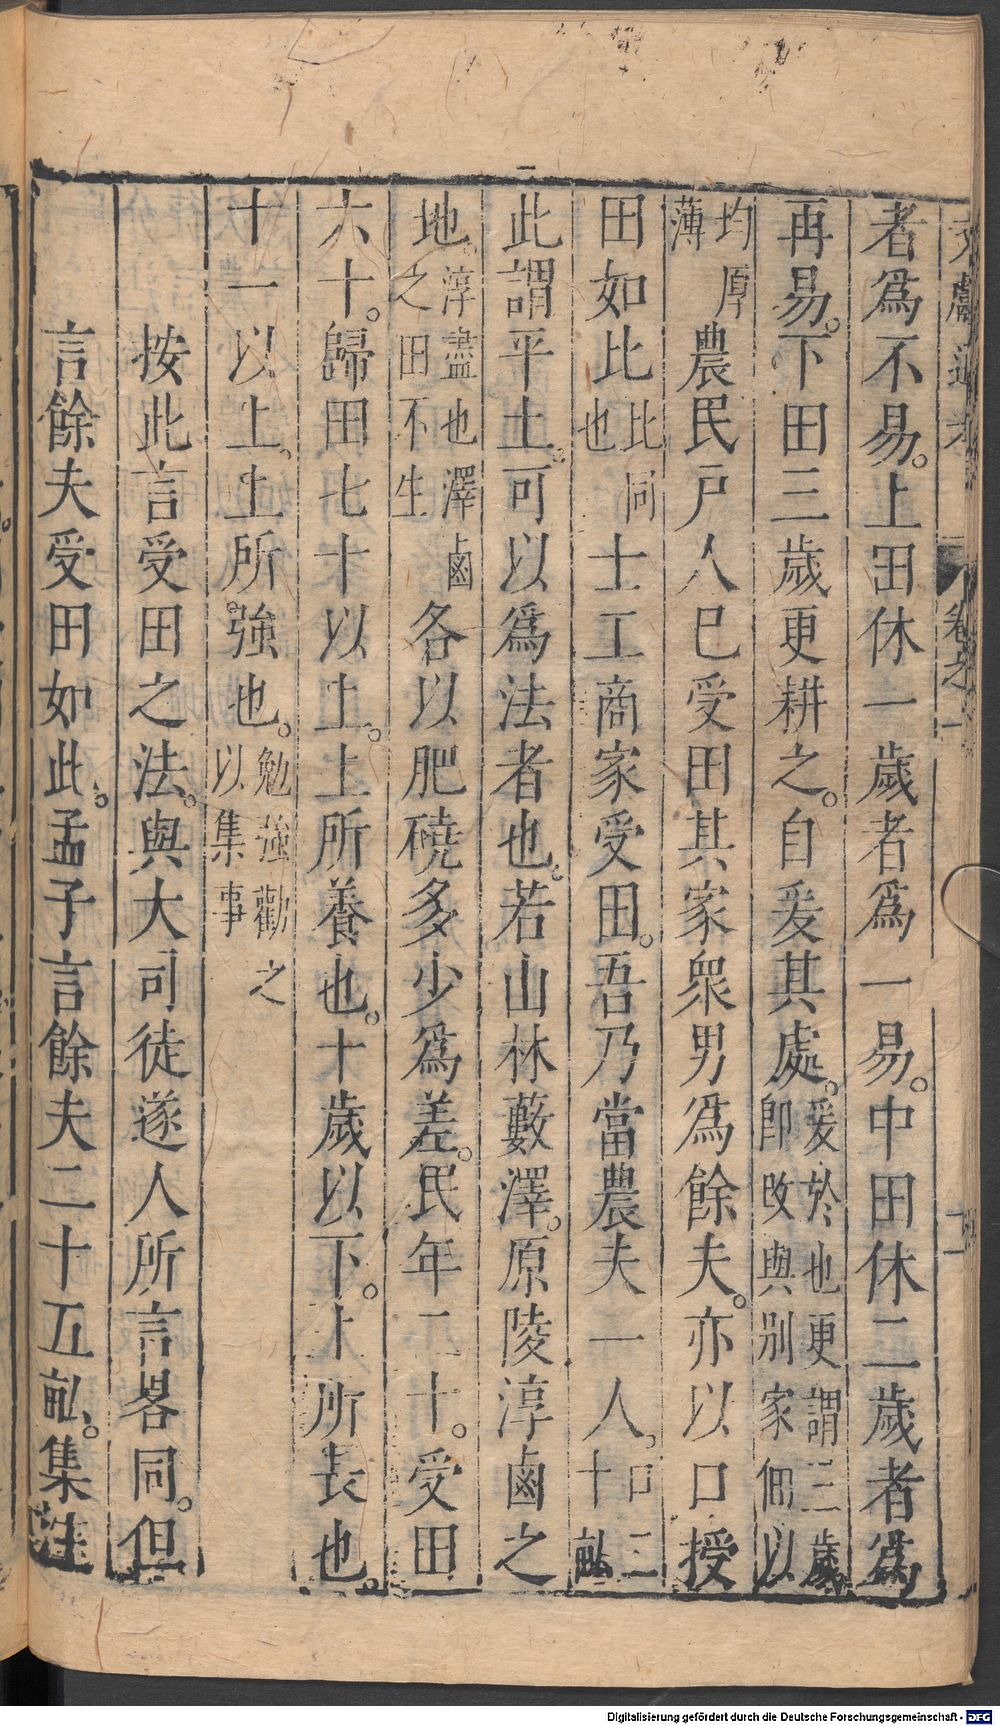 文獻通考 卷之一
者爲不易。上田休一歲者爲一易。中田休二歲者爲
再易。下田三歲更耕之。自爰其處。爰於也更謂三歲即改與別家佃以
均厚薄農民戸人已受田其家衆男爲餘夫。亦以口授
田如比比同也士工商家受田。吾乃當農夫一人。口三十畝
此謂平土。可以爲法者也。若山林藪澤。原陵淳鹵之
地。淳盡也澤鹵之田不生各以肥磽多少爲差。民年二十。受田
六十。歸田七十以上。上所養也。十歲以下。上所長也。
十一以上。上所。強也。勉強勸之以集事
按此言受田之法。與大司徒遂人所言畧同。但
言餘夫受田如此。孟子言餘夫二十五畝。集註
Digitalisierung gefördert durch die Deutsche Forschungsgemeinschaft - DFG